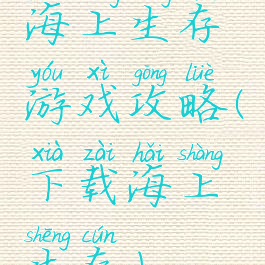 海上生存
yóu xì gōng lüè
游戏攻略(
xià zài hǎi shàng
下载海上
shēng cún
生存)